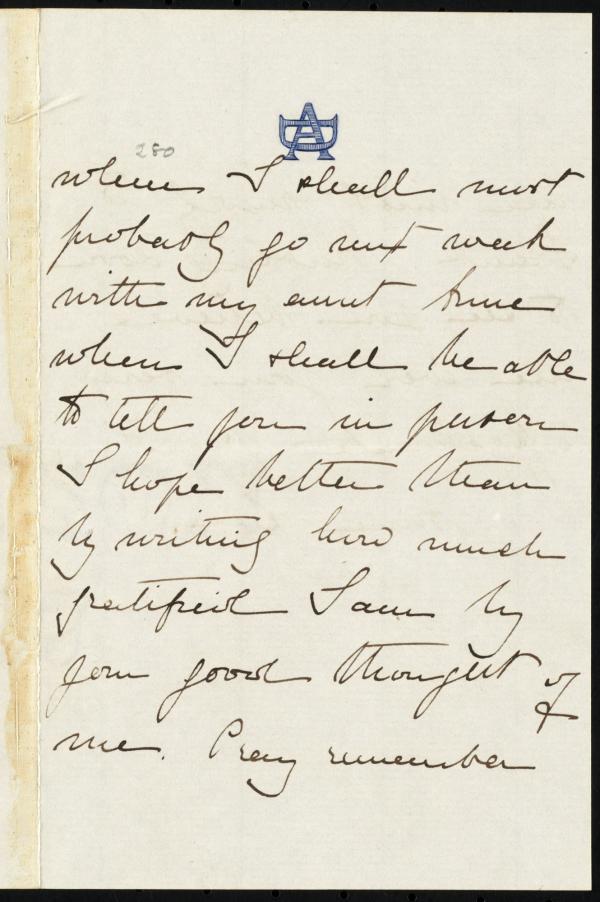 280
when I shall most
probably go next week
with my aunt
when I shall be able
to tell you in person
I hope better than
by writing how much
gratified I am by
your good thought of
me. Pray remember